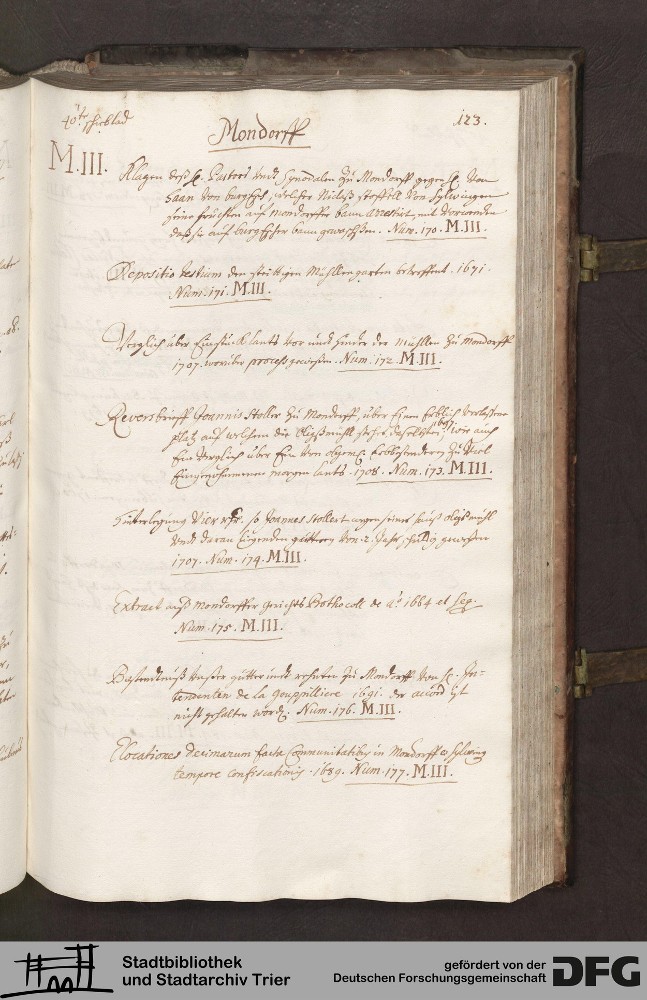 40te schieblad
Mondorff
123.
M.III.
Klagen deß H. Pastors undt Synodalen zu Mondorff gegen H. von
Haan von burgesch, welcher Niclaß stoffell von Sylwingen
seine früchten auf mondorffer bann arrestirt, mit vorwenden
daß sie auf burgescher bann gewachsen. Num. 170. M.III.
Depositio testium den strittigen Mühllengarten betreffent. 1671.
Num. 171. M.III.
Verglich über Ein stück lants vor undt hinder der mühllen zu Mondorff
1707. worüber process gewesen. Num. 172. M.III.
Reversbrieff Joannis Stoller zu Mondorff, über Einen Erblich verlasenen
platz auf welchem die Oligsmühl stehet daselbsten, wie auch
Ein Verglich über Ein von Erbbestendern zu viel
Eingenohmenen morgen lants. 1708. Num. 173. M.III.
Hinterlegung vier so Joannes Stollert wegen seines hauß oligs mühl
undt daran liegenden güttern von 2. Jahr schuldig gewesen
1707. Num. 174. M.III.
Extract auß Mondorffer gerichts Prothocoll de ao. 1664 et seq.
Num. 175. M.III.
Bestendtnuß unser gütter undt rehnten zu Mondorff von H. In-
tendenten de la Goupilliere 1691. der accord ist
nicht gehalten word. Num. 176. M.III.
Elocationes Decimarum factae Communitatibus in Mondorff & Sylwing
tempore confiscationis. 1689. Num. 177. M.III.
Stadtbibliothek
und Stadtarchiv Trier
gefördert von der
Deutschen Forschungsgemeinschaft
DFG